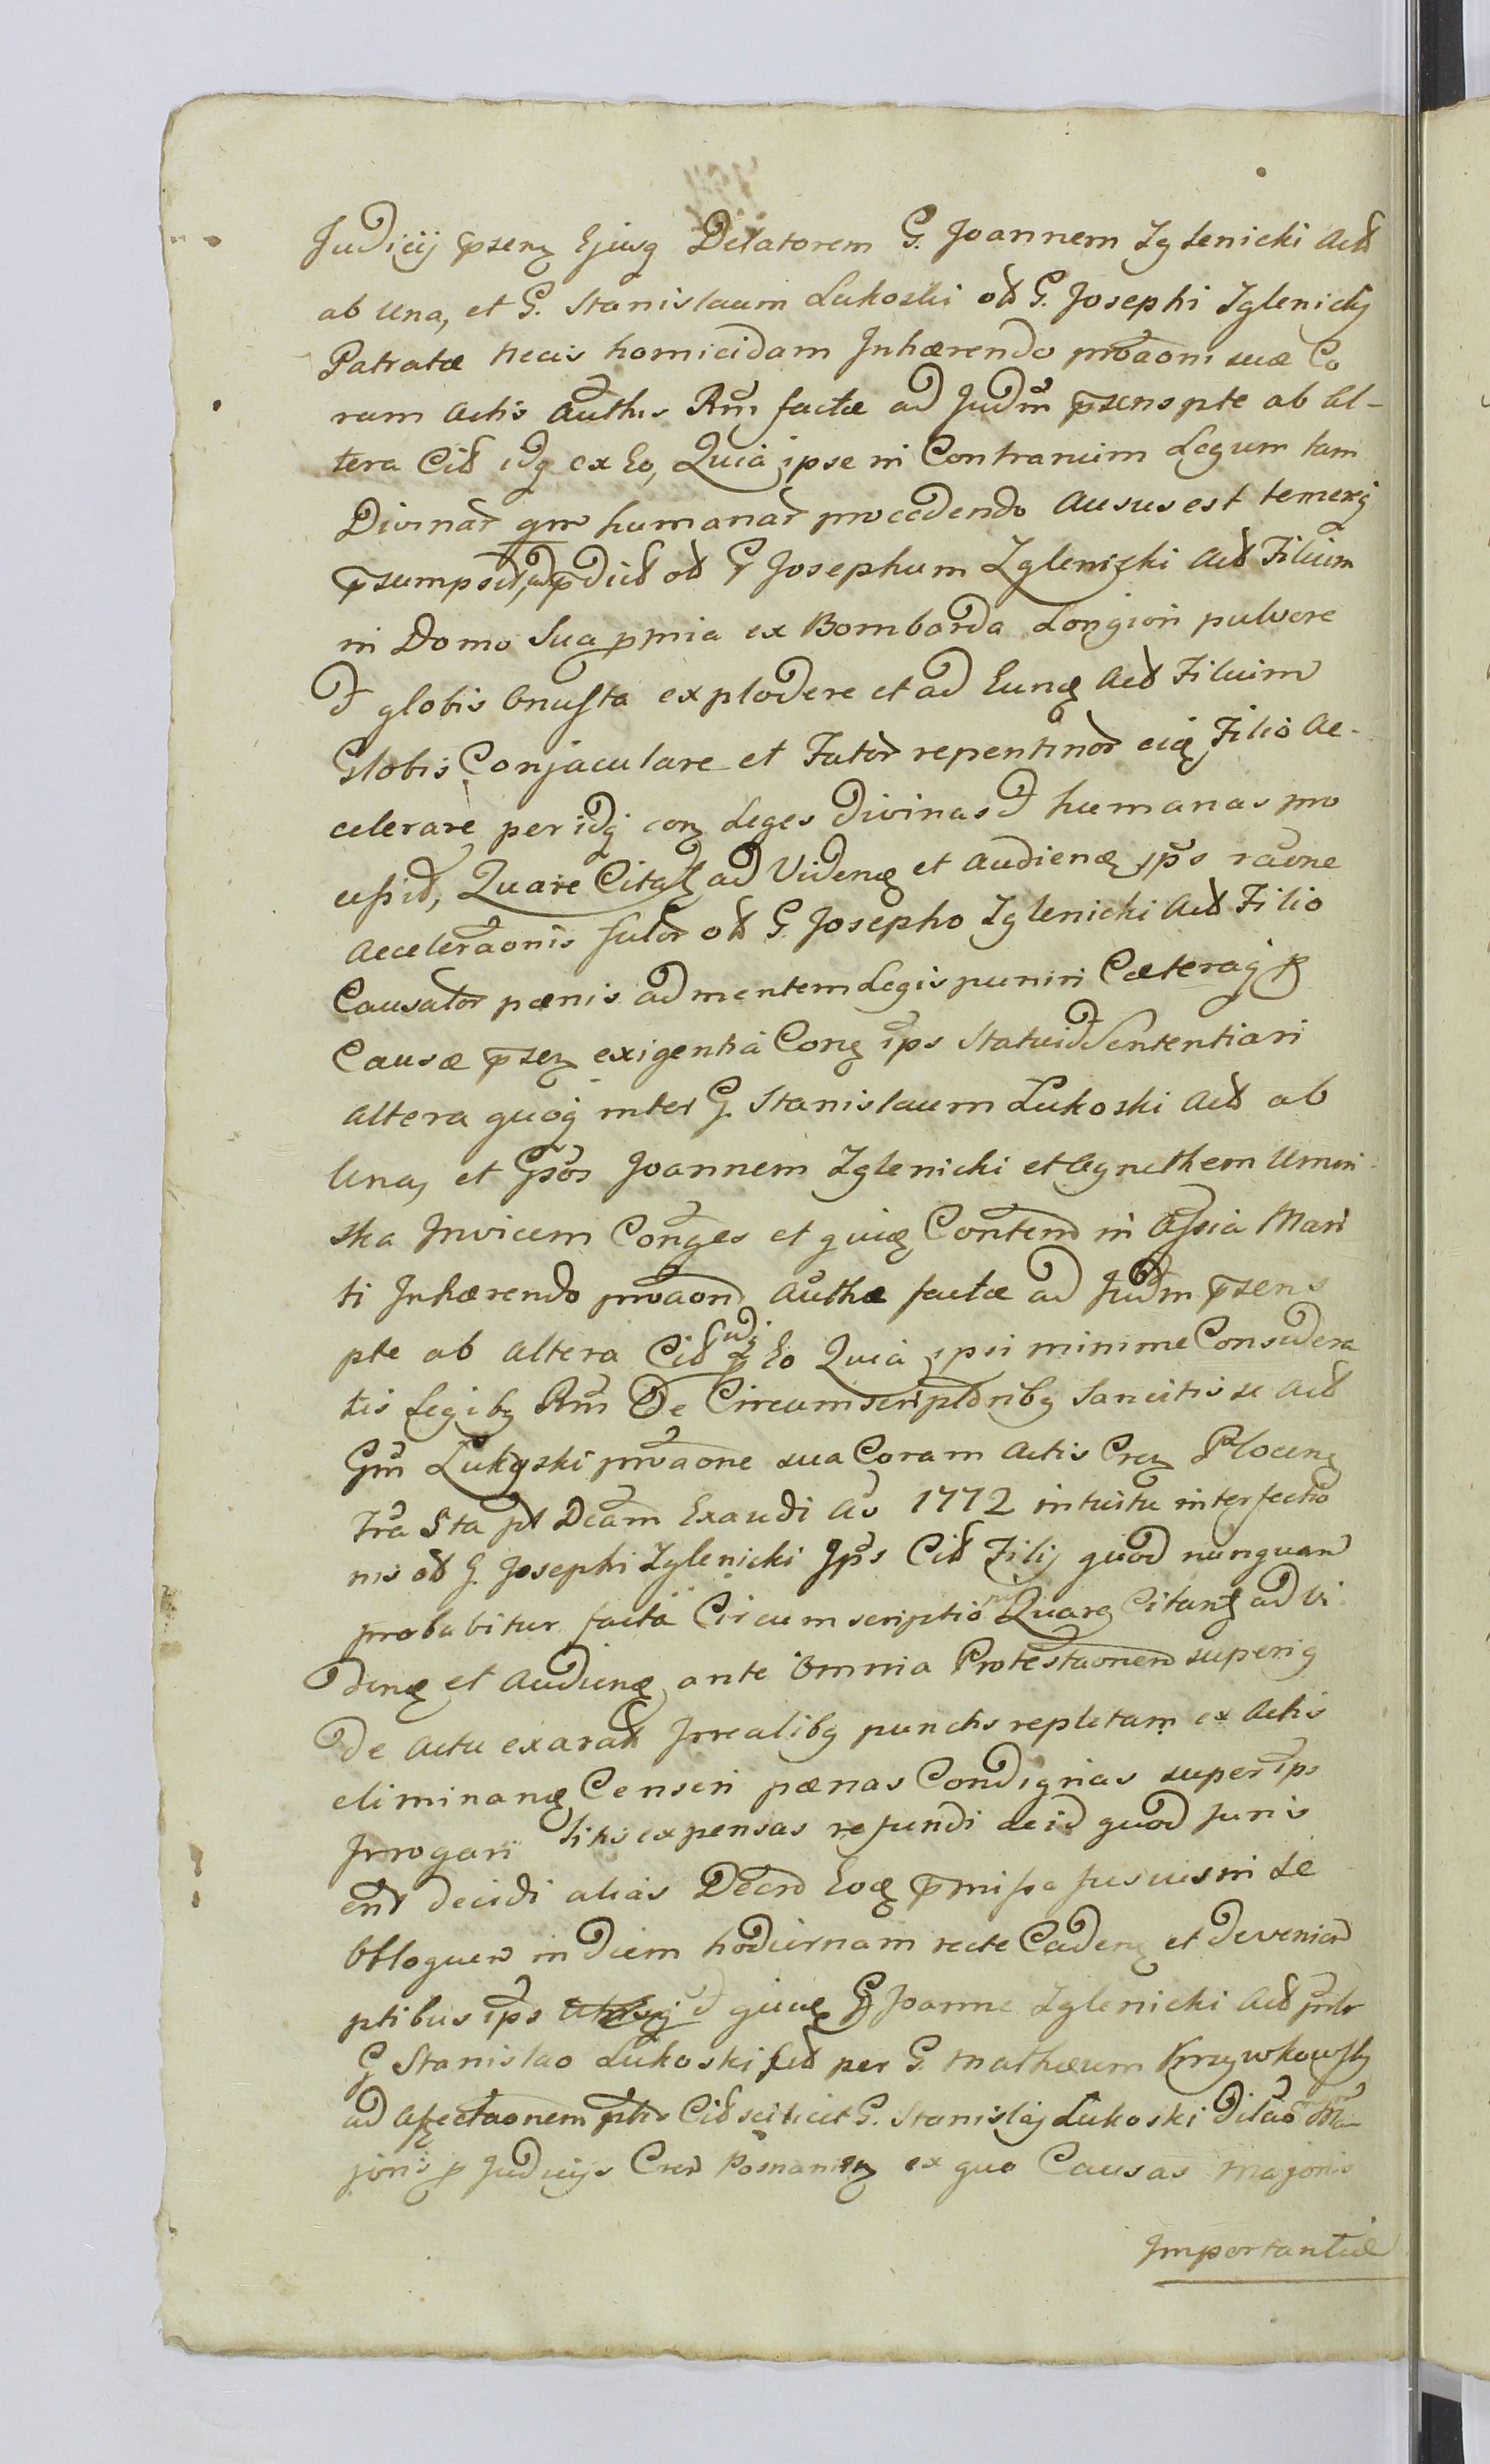 Judicij psenz Ejusq Delatorem G. Joannem Zglenicki Act
ab Una, et G. Stanislaum Lukoski ott G. Josephi Zglenicki
Patratæ necis homicidam Inhærendo proaoni suæ Co
ram Actis Authis Rni factæ ad Judm psens pte ab Al-
tera Citt idq ex Eo, Quia ipse in Contrarium Legum tam
Divinar qm humanar procedendo Ausus est temereq
psumpsit, ad pdict ott G Josephum Zglenicki Act Filium
in Domo Sua ppria ex Bombarda Longiori pulvere
et globis Onusta explodere et ad Eunq Act Filium
Globis Conjaculare et Fator repentinor eiq Filio Ac-
celerare per idq con Leges Divinas et humanas pro
cessit, Quare Citat ad Videnq et Audienq ips raone
Acceleraonis fator ott G. Josepho Zglenicki Act Filio
Causator pænis ad mentem Legis puniri Cæteraq p
Causæ psez exigentia Conq ips Statui et Sententiari
Altera quoq inter G. Stanislaum Lukoski Act ab
Una, et Gsos Joannem Zglenicki et Agnethem Umin
ska Invicem Conges et quiq Contend in Assia Mari
ti Inhærendo proaoni Authæ factæ ad Judm psens
pte ab Altera Citt idq p Eo Quia ipsi minime Considera
tis Legibq Rni De Circumscriptoribq Sancitis se Act
Gm Lukoski proaone sua Coram Actis Crez Plocenz
Fra Sta pt Dcam Exaudi Ao 1772 intuitu interfectio
nis ott G. Josephi Zglenicki Ips Citt Filij quod nunquam
probabitur facta Circumscriptio Quare Citant ad Vi
denq et Audienq ante Omnia Protestaonem superiq
De Actu exarat Irrealibq punctis repletam ex Actis
eliminanq Censeri pænas Condignas super ips
Irrogari Litis expensas refundi de id quod Juris
ent decidi alias Decrd Eoq pmissa fusius in Se
Obloquen in Diem hodiernam recte Caden et Devenien
ptibus ips et quiq G Joanne Zglenicki Act
G Stanislao Lukoski Citt per G. Mathæum Krzywkowski
ad Affectaonem ptis Citt scilicet G. Stanislaj Lukoski Dilao Ma-
joris p Judicijs Cren Posnanien ex quo Causas Majoris
Importantiæ